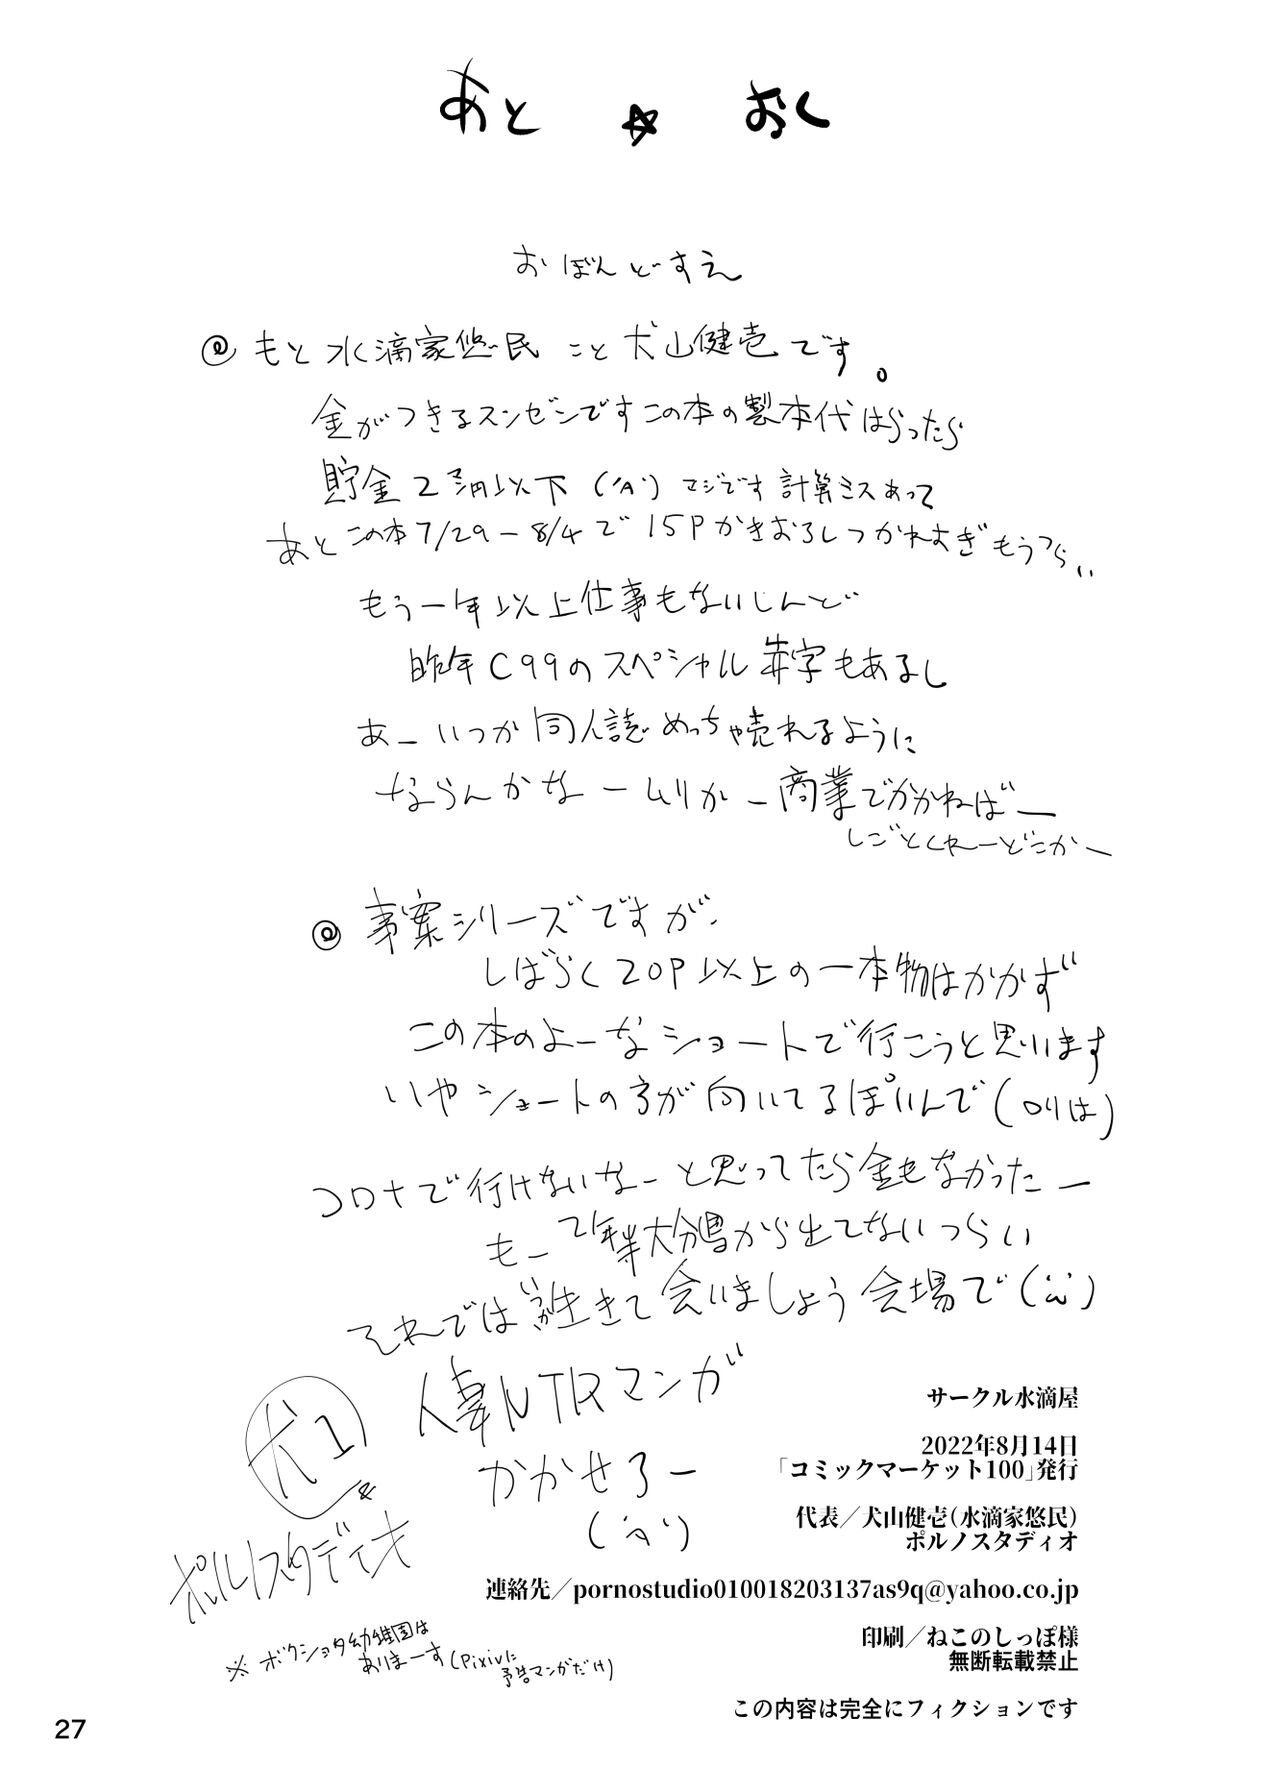 あと☆おく
おぼんどすえ
◎もと水滴家悠民こと犬山健壱です。
金がつきるスンゼンですこの本の製本代はらったら
貯金2万円以下('A`)マジです計算ミスあって
あとこの本7/29-8/4で15Pかきおろしつかれすぎもうつらい
もう一年以上仕事もないしんど
昨年C99のスペシャル赤字もあるし
あーいつか同人誌めっちゃ売れるように
ならんかなームリかー商業でかかねばー
しごとくれーどこかー
◎事案シリーズですが、
しばらく20P以上の一本物はかかず
この本のよーなショートで行こうと思います
いやショートの方が向いてるぽいんで(ロリは)
コロナで行けないなーと思ってたら金もなかったー
もー2年半大分県から出てないつらい
それではいつか生きて会いましょう会場で
人妻NTRマンガ
かかせろー
犬1
&
ポルノスタディオ
※ボクショタ幼稚園は
ありまーす(Pixivに
予告マンガだけ)
サークル水滴屋
2022年8月14日
「コミックマーケット100」発行
代表／犬山健壱(水滴家悠民)
ポルノスタディオ
連絡先／pornostudio010018203137as9q@yahoo.co.jp
印刷／ねこのしっぽ様
無断転載禁止
この内容は完全にフィクションです
27